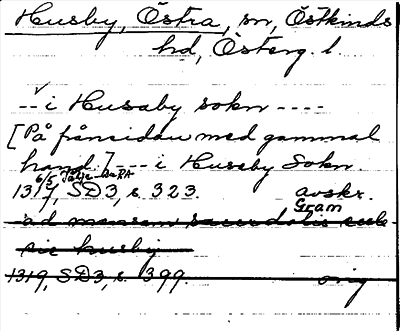 Husby, Östra, sn, Östkinds
hd, Österg. l.
--- i Husaby sokn ----
[På frånsidan med gammal
hand.] --- i Huseby Sokn.
6/5 Tälje
1317, SD3, s. 323. avskr.
Gram
ad mensam sacerdotis eccle-
sie husby
1319, SD3, s. 399. orig